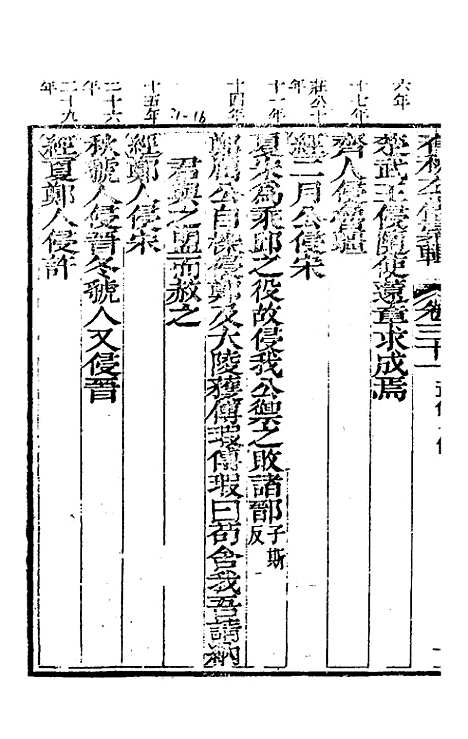 春秋分傳彙輯 卷三十一
六年
楚武王侵隨使薳章求成焉
十七年
齊人侵魯疆
莊公十年
經二月公侵宋
十一年
夏宋為乘邱之役故侵我公禦之敗諸鄑子斯反
十四年
鄭厲公自櫟侵鄭及大陵獲傅瑕傅瑕曰苟舍我吾請納
君與之盟而赦之
十五年
經鄭人侵宋
二十六年
秋虢人侵晉冬虢人又侵晉
二十九年
經夏鄭人侵許